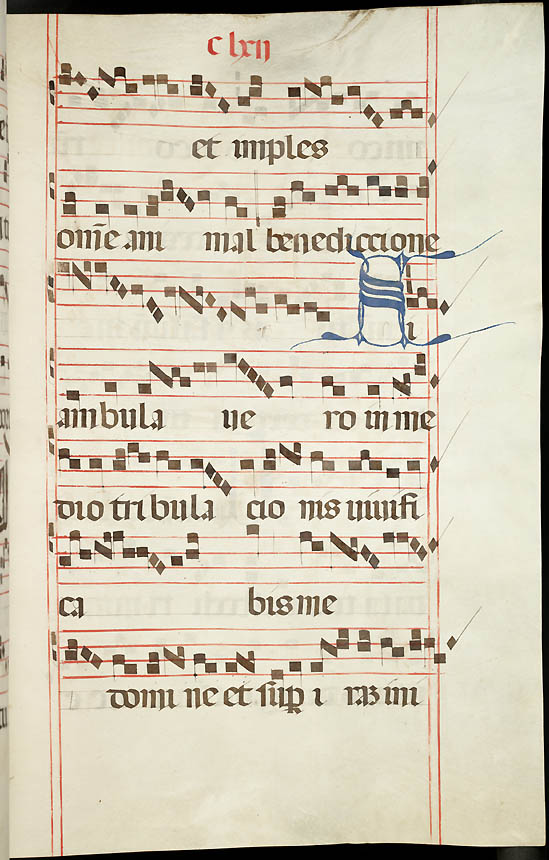 C lxii
et imples
om̄e ani mal benediccione
Si
ambula ve ro in me
dio tribula cio nis vivifi
ca bis me
domi ne et sup i raz ini